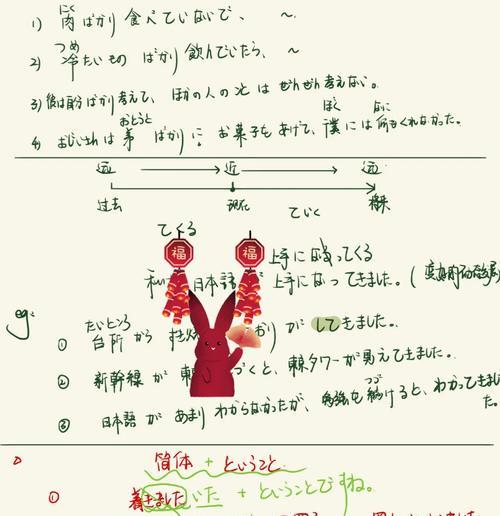 にく
1) 肉ばかり食べていないで、 〜.
つめ
2) 冷たいもの ばかり 飲んでいたら、 〜
3) 彼は自分ばかり考えて、ほかの人のことはぜんぜん考えない。
おとうと ぼく なに
4) おじいさんは弟ばかりに、お菓子をあげて、僕には何もくれなかった。
远 近 远
过去 现在 将来
ていく
てくる
福 福
上手になってくる
私 日本語 上手になってきました。(
eg:
だいどころ
① 台所から おりがしてきました。
② 新幹線が東 づくと、東京タワーが見えてきました。
つづ
③ 日本語があまりわからなかったが、勉強を続けると、わかってきました。
简体 + ということ
① 着きました いた + ということですね。